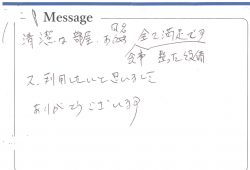 Message
清潔な部屋、お 全て満足です
食事 整った設備
又、利用したいと思いました
ありがとうございます